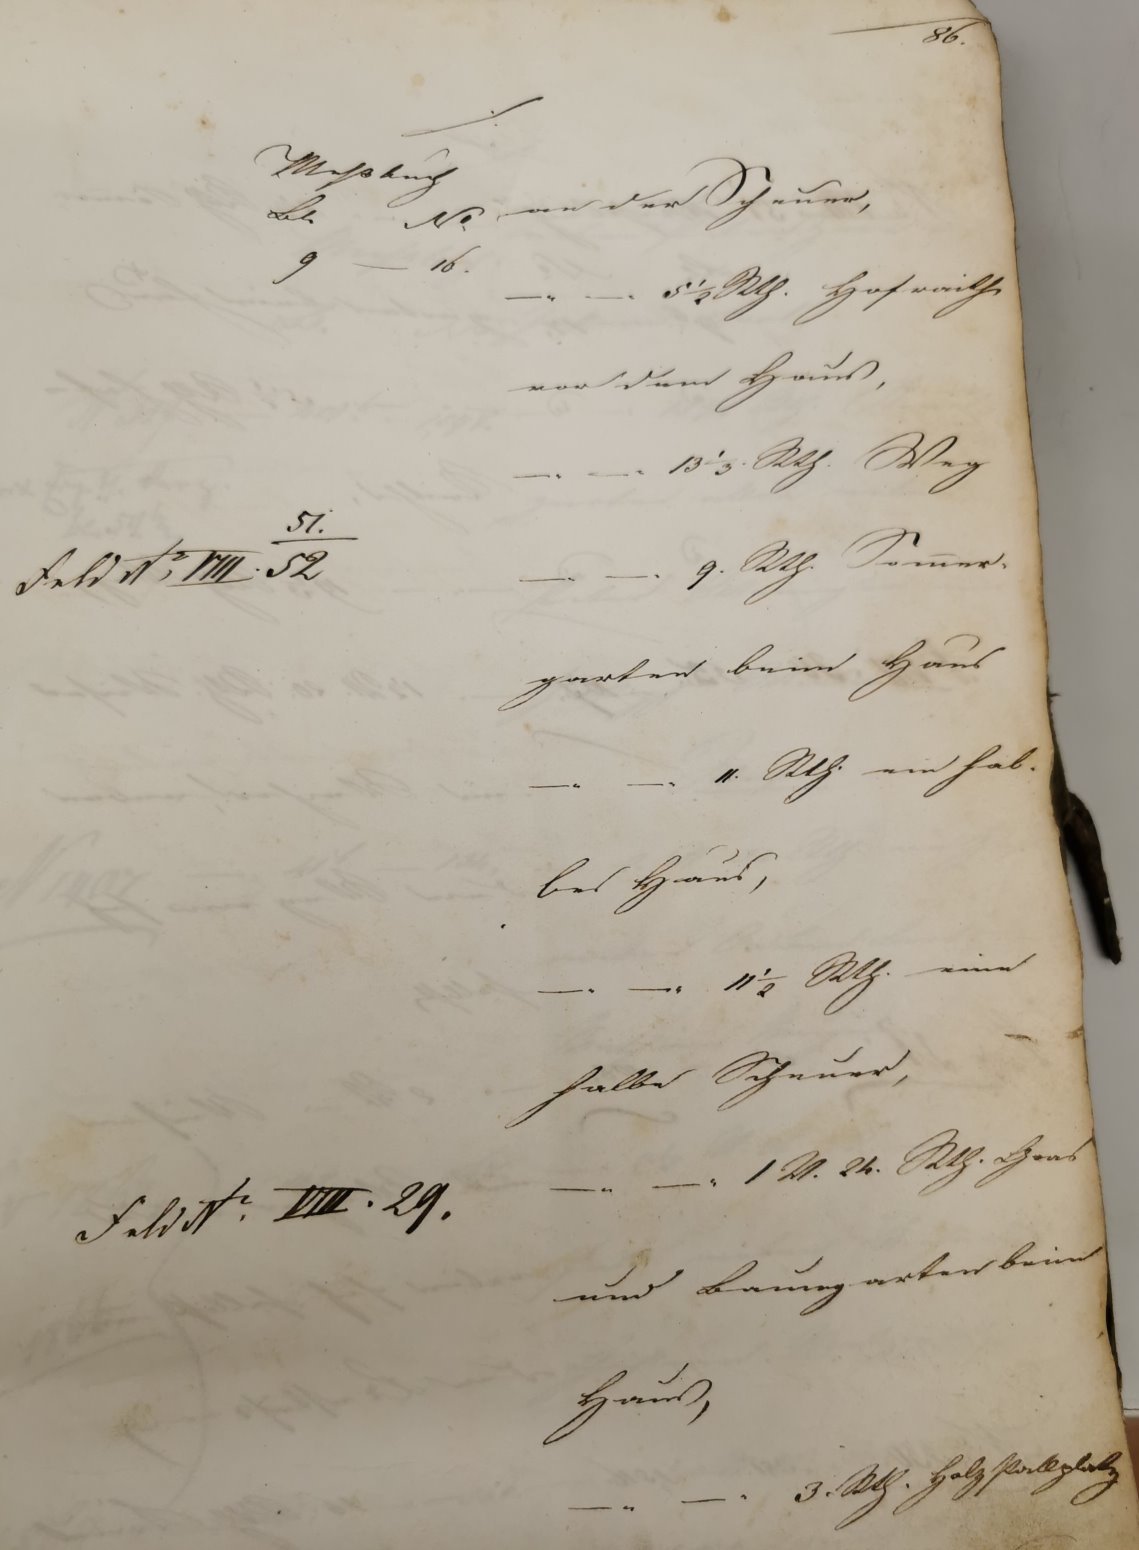 86.
Meßbuch
Bl. No.
9 — 16.
an der Scheuer,
—„ —„ 5 1/2 Rth. Hofraith
vor dem Haus,
—„ —„ 13 1/3. Rth. Weg
Feld No. VIII. 51./52
—„ —„ 9. Rth. Som̅er-
garten beim Haus
—„ —„ 11. Rth. ein hal-
bes Haus,
—„ —„ 11 1/2 Rth. eine
halbe Scheuer,
Feld No. VIII. 29.
—„ —„ 1 V. 24. Rth. Gras
und Baumgarten beim
Haus,
—„ —„ 3. Rth. Holzstallplatz